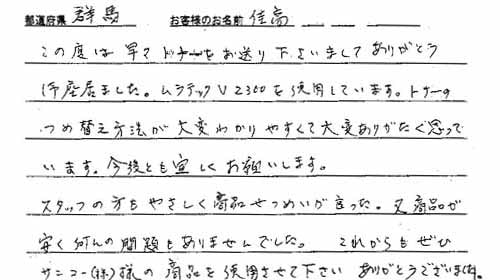 都道府県 群馬 お客様のお名前 佳高
この度は早々トナーをお送り下さいましてありがとう
御座居ました。ムラテックV2300を使用しています。トナーの
つめ替え方法が大変わかりやすくて大変ありがたく思って
います。今後とも宜しくお願いします。
スタッフの方もやさしく商品せつめいが良った。又商品が
安く何んの問題もありませんでした。 これからもぜひ
サンコー(株)様の商品を使用させて下さい ありがとうございます。